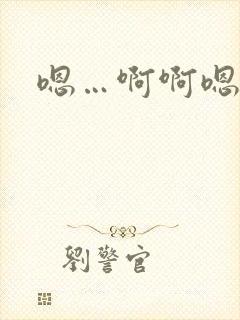 嗯…啊啊嗯
劉警官